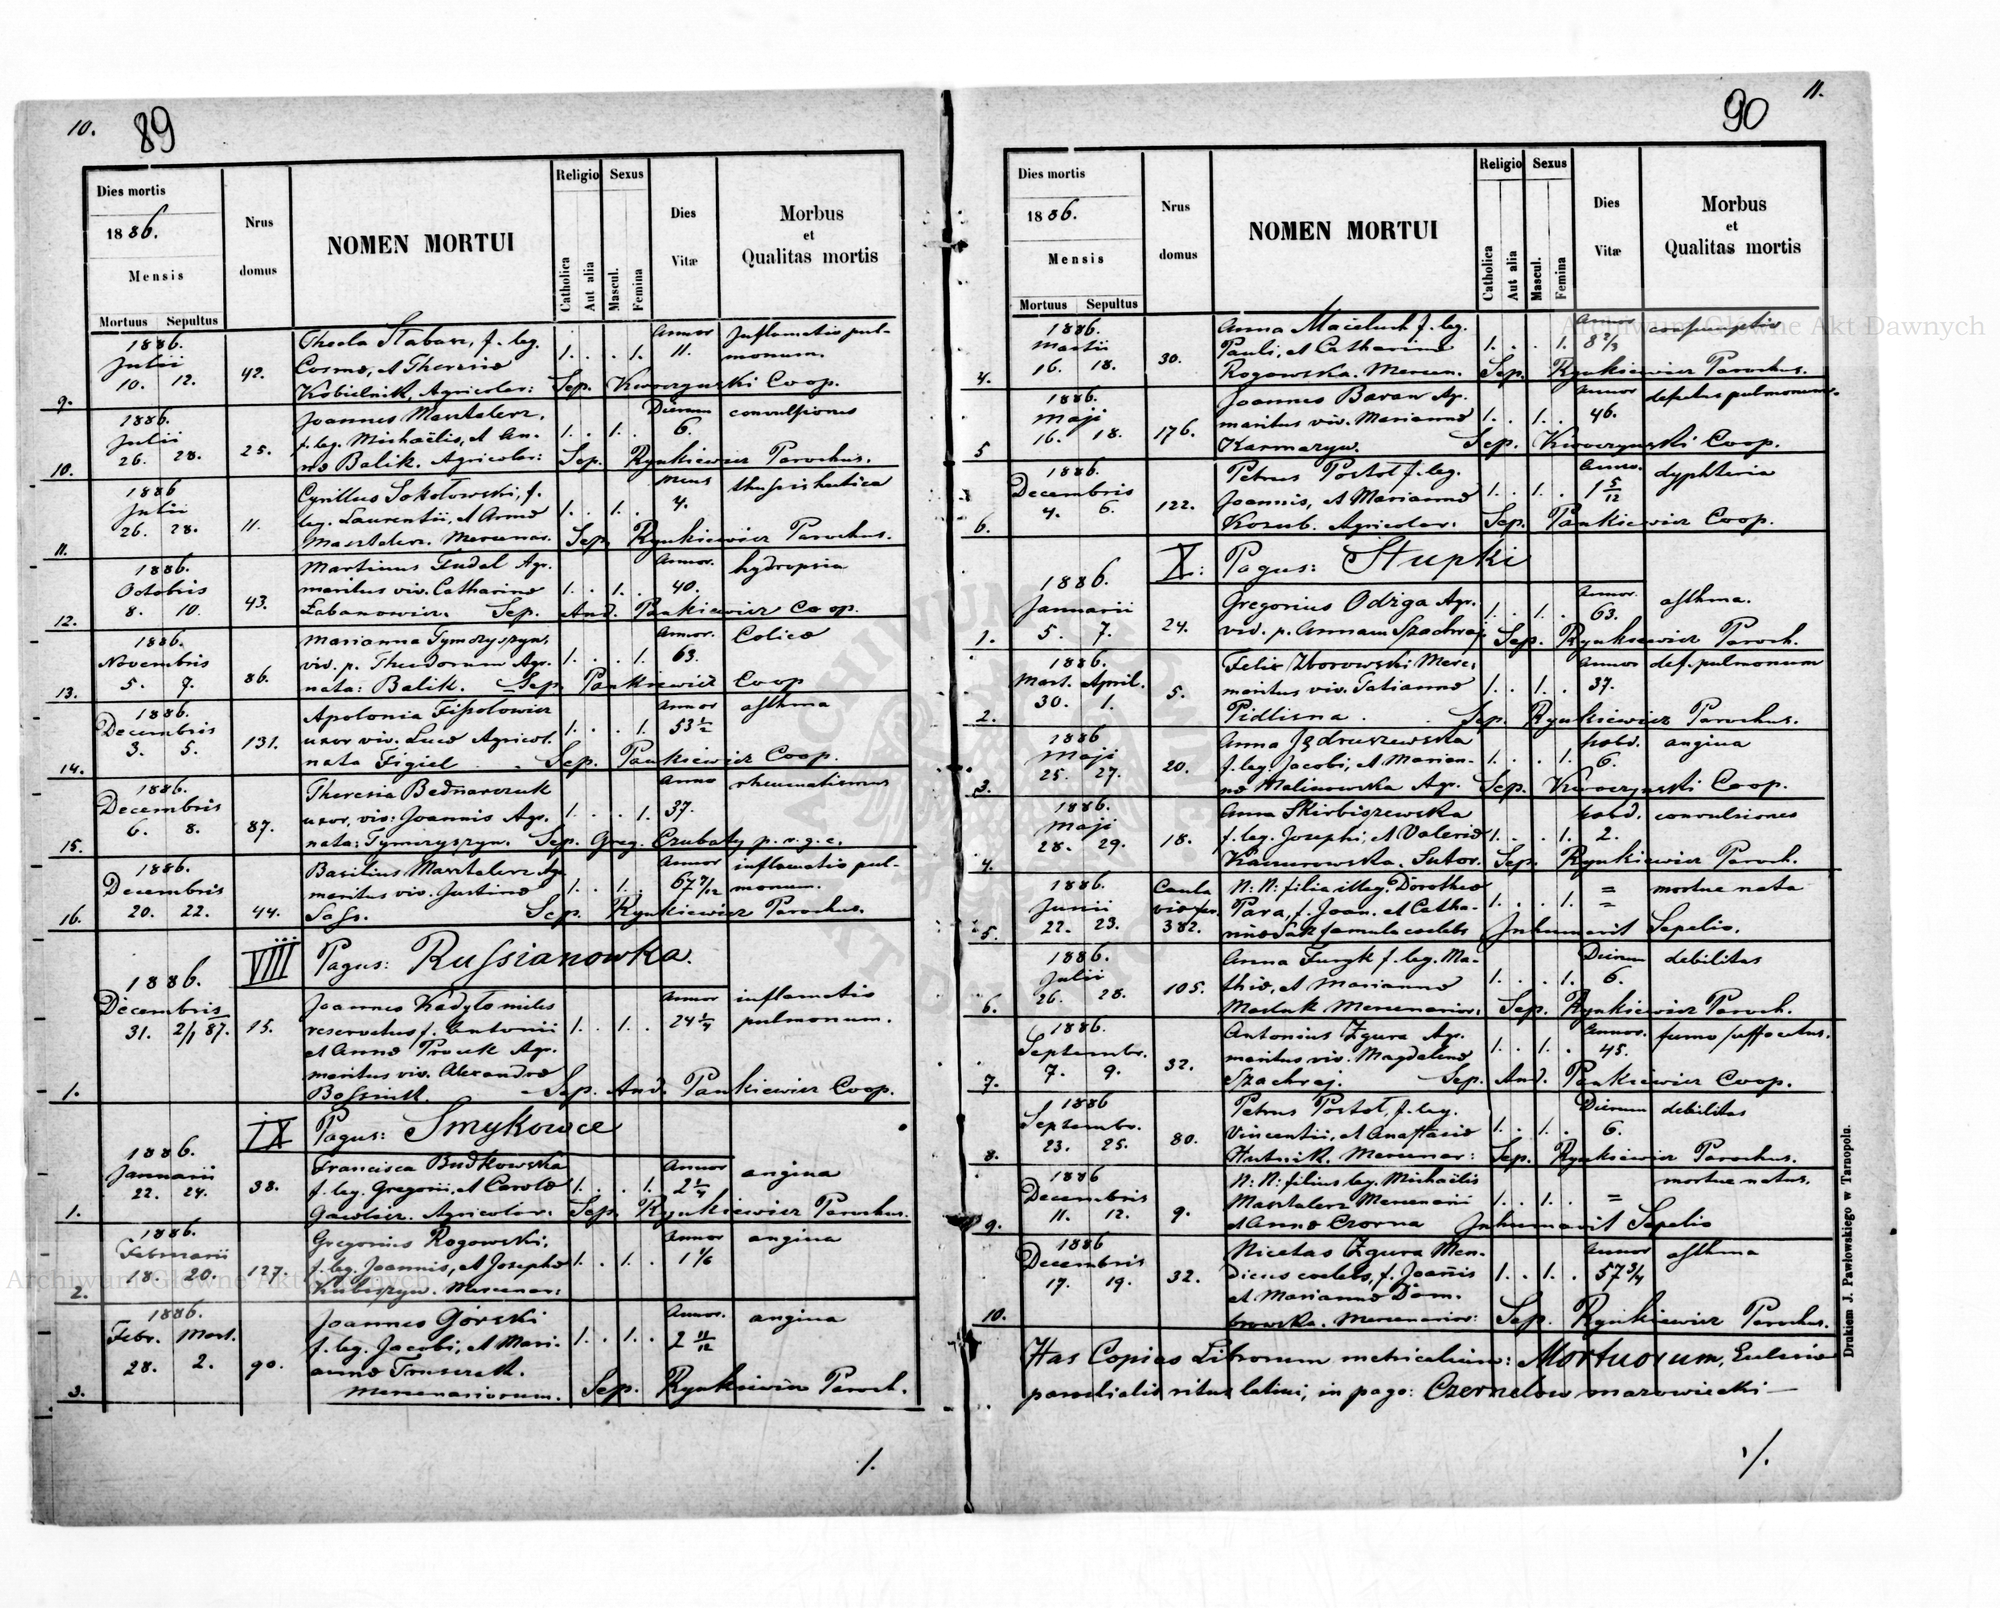 10. 89
Dies mortis
1886.
Mensis
Mortuus Sepultus
Nrus
domus
NOMEN MORTUI
Religio
Catholica
Aut alia
Sexus
Mascul.
Femina
Dies
Vitæ
Morbus
et
Qualitas mortis
1886. Thecla Stabarz, f. leg. Annor Inflamatio pul-
Julii Cosmæ, et Theresiæ 1. . . 1. 11. monum.
9. 10. 12. 42. Kobielnik, Agricolar: Sep. Kworzynski Coop.
1886. Joannes Masztalerz, Dierum convulsiones
Julii f. leg. Michaëlis, et An- 1. . 1. . 6.
10. 26. 28. 25. næ Balik. Agricolar: Sep. Rynkiewicz Parochus.
1886 Cyrillus Sokołowski, f. mens
Julii leg. Laurentii, et Annæ 1. . 1. . 4.
11. 26. 28. 11. Masztalerz. Mercenar. Sep. Rynkiewicz Parochus.
1886. Martinus Agr. Annor. hydropsia
Octobris maritus viv. Catharinæ 1. . 1. . 40.
12. 8. 10. 43. Łabanowicz. Sep. And. Pankiewicz Coop.
1886. Marianna Tymczyszyn, Annor. Colicæ
Novembris vid. p. Theodorum Agr. 1. . . 1. 63.
13. 5. 7. 86. nata: Balik. Sep. Pankiewicz Coop
1886. Apolonia Annor asthma
Decembris uxor viv. Lucæ Agricol. 1. . . 1. 53 1/2
14. 3. 5. 131. nata Figiel Sep. Pankiewicz Coop.
1886. Theresia Bednarczuk Anno rheumatismus
Decembris uxor, viv: Joannis Agr. 1. . . 1. 37.
15. 6. 8. 87. nata: Tymczyszyn. Sep. Greg. Czubaty p. r. g. c.
1886. Basilius Masztalerz Agr. Annor inflamatio pul-
Decembris maritus viv. Justinæ 1. . 1. . 67 7/12 monum.
16. 20. 22. 44. Sass. Sep. Rynkiewicz Parochus.
VIII Pagus: Russianowka.
1886. Joannes Kadyło miles Annor inflamatio
Decembris reservatus f. Antonii 1. . 1. . 24 1/4 pulmonum.
31. 2/1 87. 15. et Annæ Agr.
maritus viv. Alexandræ
1. Sep. And. Pankiewicz Coop.
IX Pagus: Smykowce
1886. Francisca Budkowska Annor angina
Januarii f. leg. Gregorii, et Carolæ 1. . . 1. 2 1/4
1. 22. 24. 38. Gawlicz. Agricolar: Sep. Rynkiewicz Parochus.
1886. Gregorius Rogowski, Annor angina
Februarii f. leg. Joannis, et Josephæ 1. . 1. . 1 1/6
2. 18. 20. 127. Kubiszyn. Mercenar:
1886. Joannes Górski Annor. angina
Febr. Mart. f. leg. Jacobi, et Mari- 1. . 1. . 2 11/12
28. 2. 90. annæ
3. Mercenariorum. Sep. Rynkiewicz Paroch.
./.
11.
90
Dies mortis
1886.
Mensis
Mortuus Sepultus
Nrus
domus
NOMEN MORTUI
Religio
Catholica
Aut alia
Sexus
Mascul.
Femina
Dies
Vitæ
Morbus
et
Qualitas mortis
1886. Anna Macieluch f. leg. Annor consumptio
Martii Pauli, et Catharinæ 1. . . 1. 8 2/3
4. 16. 18. 30. Rogowska. Mercen. Sep. Rynkiewicz Parochus.
1886. Joannes Baran Agr. Annor defectus pulmonum.
Maji maritus viv. Mariannæ 1. . 1. . 46.
5 16. 18. 176. Karmazyn. Sep. Kworzynski Coop.
1886 Petrus Postoł f. leg. Anno. dyphteria
Decembris Joannis, et Mariannæ 1. . 1. . 1 5/12
6. 4. 6. 122. Kozub. Agricolar: Sep. Pankiewicz Coop.
X: Pagus: Stupki
1886. Gregorius Odzga Agr. Annor. asthma.
Januarii vid. p. Annam Szachraj 1. . 1. . 63.
1. 5. 7. 24. Sep. Rynkiewicz Paroch.
1886. Felix Zborowski Merc: Annor def. pulmonum
Mart. April. maritus viv. Tatiannæ 1. . 1. . 37.
2. 30. 1. 5. Pidlisna. Sep. Rynkiewicz Parochus.
1886 Anna Jędruszewska hebd. angina
Maji f. leg. Jacobi, et Marian- 1. . . 1. 6.
3. 25. 27. 20. næ Malinowska Agr. Sep. Kworzynski Coop.
1886. Anna Skirbiszewska hebd. convulsiones
Maji f. leg. Josephi, et Valeriæ 1. . . 1. 2.
4. 28. 29. 18. Kaczurowska. Sutor. Sep. Rynkiewicz Paroch.
1886. N: N: filia illeg. Dorotheæ = mortue nata
Junii Para, f. Joan. et Catha- 1. . . 1. =
5. 22. 23. 382. famula coelebs Inhumavit Sepelio.
1886. Anna Furyk f. leg. Ma- Dierum debilitas
Julii thiæ, et Mariannæ 1. . . 1. 6.
6. 26. 28. 105. Maśluk Mercenarior: Sep. Rynkiewicz Paroch.
1886 Antonius Zgura Agr. Annor. fumo suffocatus.
Septembr. maritus viv. Magdalenæ 1. . 1. . 45.
7. 7. 9. 32. Szachraj. Sep. And. Pankiewicz Coop.
1886 Petrus Postoł, f. leg. Dierum debilitas
Septembr. Vincentii, et Anastasiæ 1. . 1. . 6.
8. 23. 25. 80. Hutnik. Mercenar: Sep. Rynkiewicz Parochus.
1886 N: N: filius leg. Michaëlis mortue natus.
Decembris Masztalerz Mercenarii 1. . 1. . =
9. 11. 12. 9. et Annæ Czorna Inhumavit Sepelio
1886 Nicetas Zgura Men- Annor asthma
Decembris dicus coelebs, f. Joannis 1. . 1. . 57 3/4
17. 19. 32. et Mariannæ Dom-
10. browska. Mercenarior: Sep. Rynkiewicz Parochus.
Has Copias Librorum metricalium: Mortuorum, Eclesiæ
parochialis ritus latini, in pago: Czernelów mazowiecki —
./.
Drukiem J. Pawłowskiego w Tarnopolu.
Archiwum Główne Akt Dawnych
Archiwum Główne Akt Dawnych
ARCHIWUM GŁÓWNE AKT DAWNYCH